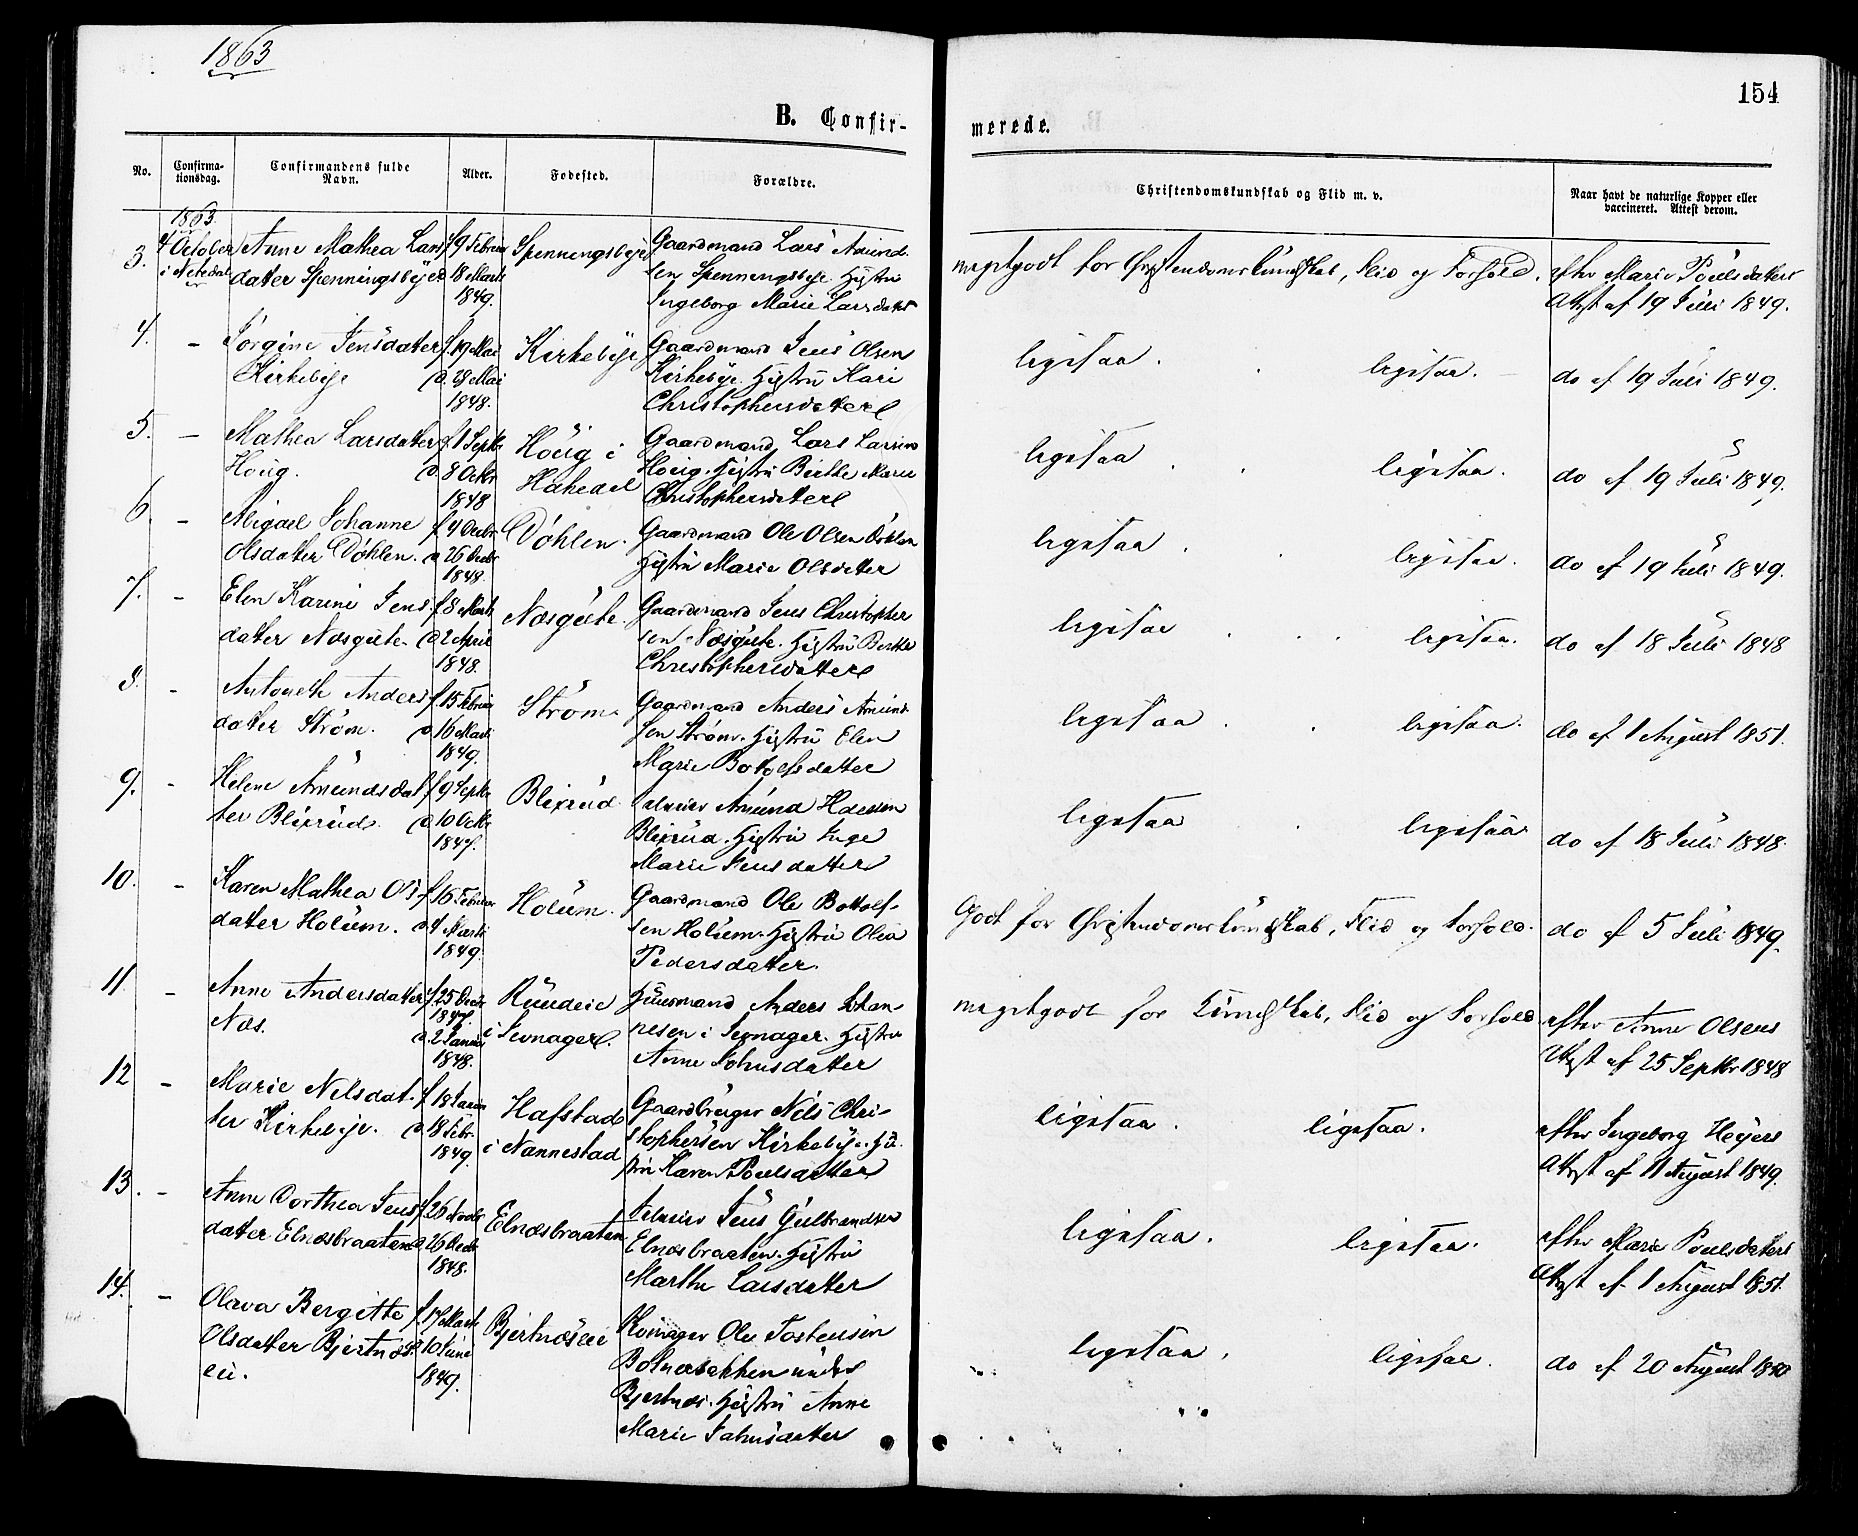 1863
154
B. Confir-
merede.
No.
Confirma-
tionsdag.
Confirmandens fulde
Navn.
Alder.
Fødested.
Forældre.
Christendomskundskab og Flid m. v.
Naar havt de naturlige Kopper eller
vaccineret. Attest derom.
1863.
3.
4 October
i Nitedal
Anne Mathea Lars
datter Spenningsbye
f 9 Februar
18 Marts
1849.
Spenningsbye
Gaardmand Lars Amund
sen Spenningsbye. Hustru
Ingeborg Marie Larsdatter
megetgodt for Christendomskundskab, Flid og Forhold.
efter Marie Poulsdatters
Attest af 19 Juli 1849.
4.
-
Jørgine Jensdatter
Kirkebye
f. 19 Mai
d. 28 Mai
1848.
Kirkebye
Gaardmand Jens Olsen
Kirkebye. Hustru Kari
Christophersdatter
ligesaa.
ligesaa.
do af 19 Juli 1849.
5.
-
Mathea Larsdatter
Houg.
f 1 Septbr
d. 8 Octbr
1848
Houg i
Hakedal
Gaardmand Lars Larsen
Houg. Hustru Birthe Marie
Christophersdatter
ligesaa
ligesaa.
do af 19 Juli 1849.
6.
-
Abigael Johanne
Olsdatter Døhlen.
f 4 Decbr
d 26 Decbr
1848.
Døhlen.
Gaardmand Ole Olsen Døhlen
Hustru Marie Olsdatter
ligesaa
ligesaa.
do af 19 Juli 1849.
7.
-
Elen Karine Jens
datter Næsgute.
f. 8 Marts
d 2 April
1848.
Næsgute.
Gaardmand Jens Christopher
sen Næsgute. Hustru Berthe
Christophersdatter
ligesaa
ligesaa.
do af 18 Juli 1848
8.
-
Antoneth Anders
datter Strøm.
f. 15 Februar
d 16 Marts
1849.
Strøm
Gaardmand Anders Amund
sen Strøm. Hustru Elen
Marie Botolfsdatter
ligesaa
ligesaa.
do af 1 August 1851.
9.
-
Helene Amundsdat
ter Blixrud.
f 9 Septbr
d 10 Octbr
1847.
Blixrud
Amund Hansen
Blixrud. Hustru Inge
Marie Jensdatter
ligesaa
ligesaa
do af 18 Juli 1848.
10.
-
Karen Mathea Ols
datter Holum.
f. 16 Februar
d 4 Marts
1849.
Holum.
Gaardmand Ole Bottolf-
sen Holum. Hustru Olea
Pedersdatter.
Godt for Christendomskundskab, Flid og Forhold.
do af 5 Juli 1849.
11
-
Anne Andersdatter
Næs.
f 25 Decbr
1847.
d. 2 Januar
1848.
i
Huusmand Anders Johan-
nesen i Hustru
Anne Johnsdatter
megetgodt for Kundskab, Flid og Forhold
efter Anne Olsens
Attest af 25 Septbr 1848
12
-
Marie Nilsdat-
ter Kirkebye.
f 18 Januar
d 18 Febr.
1849.
Hafstad
i Nannestad
Gaardbruger Nils Chri-
stophersen Kirkebye. Hu-
stru Karen Poulsdatter
ligesaa.
ligesaa.
efter Ingeborg Heyers
Attest af 11 August 1849.
13.
-
Anne Dorthea Jens
datter Elnæsbraaten
f. 26 Novbr
d 26 Decbr
1848.
Elnæsbraaten
Jens Gulbrandsen
Elnæsbraaten. Hustru
Marthe Larsdatter
ligesaa.
ligesaa.
efter Marie Poulsdatters
Attest af 1 August 1851.
14.
-
Olava Bergitte
Olsdatter Bjertnæs
eie.
f 17 Marts
d 10 Juni
1849.
Bjertnæseie
Ole Tostensen
under
Bjertnæs. Hustru Anne
Marie Johnsdatter
ligesaa.
ligesaa.
do af 20 August 1850